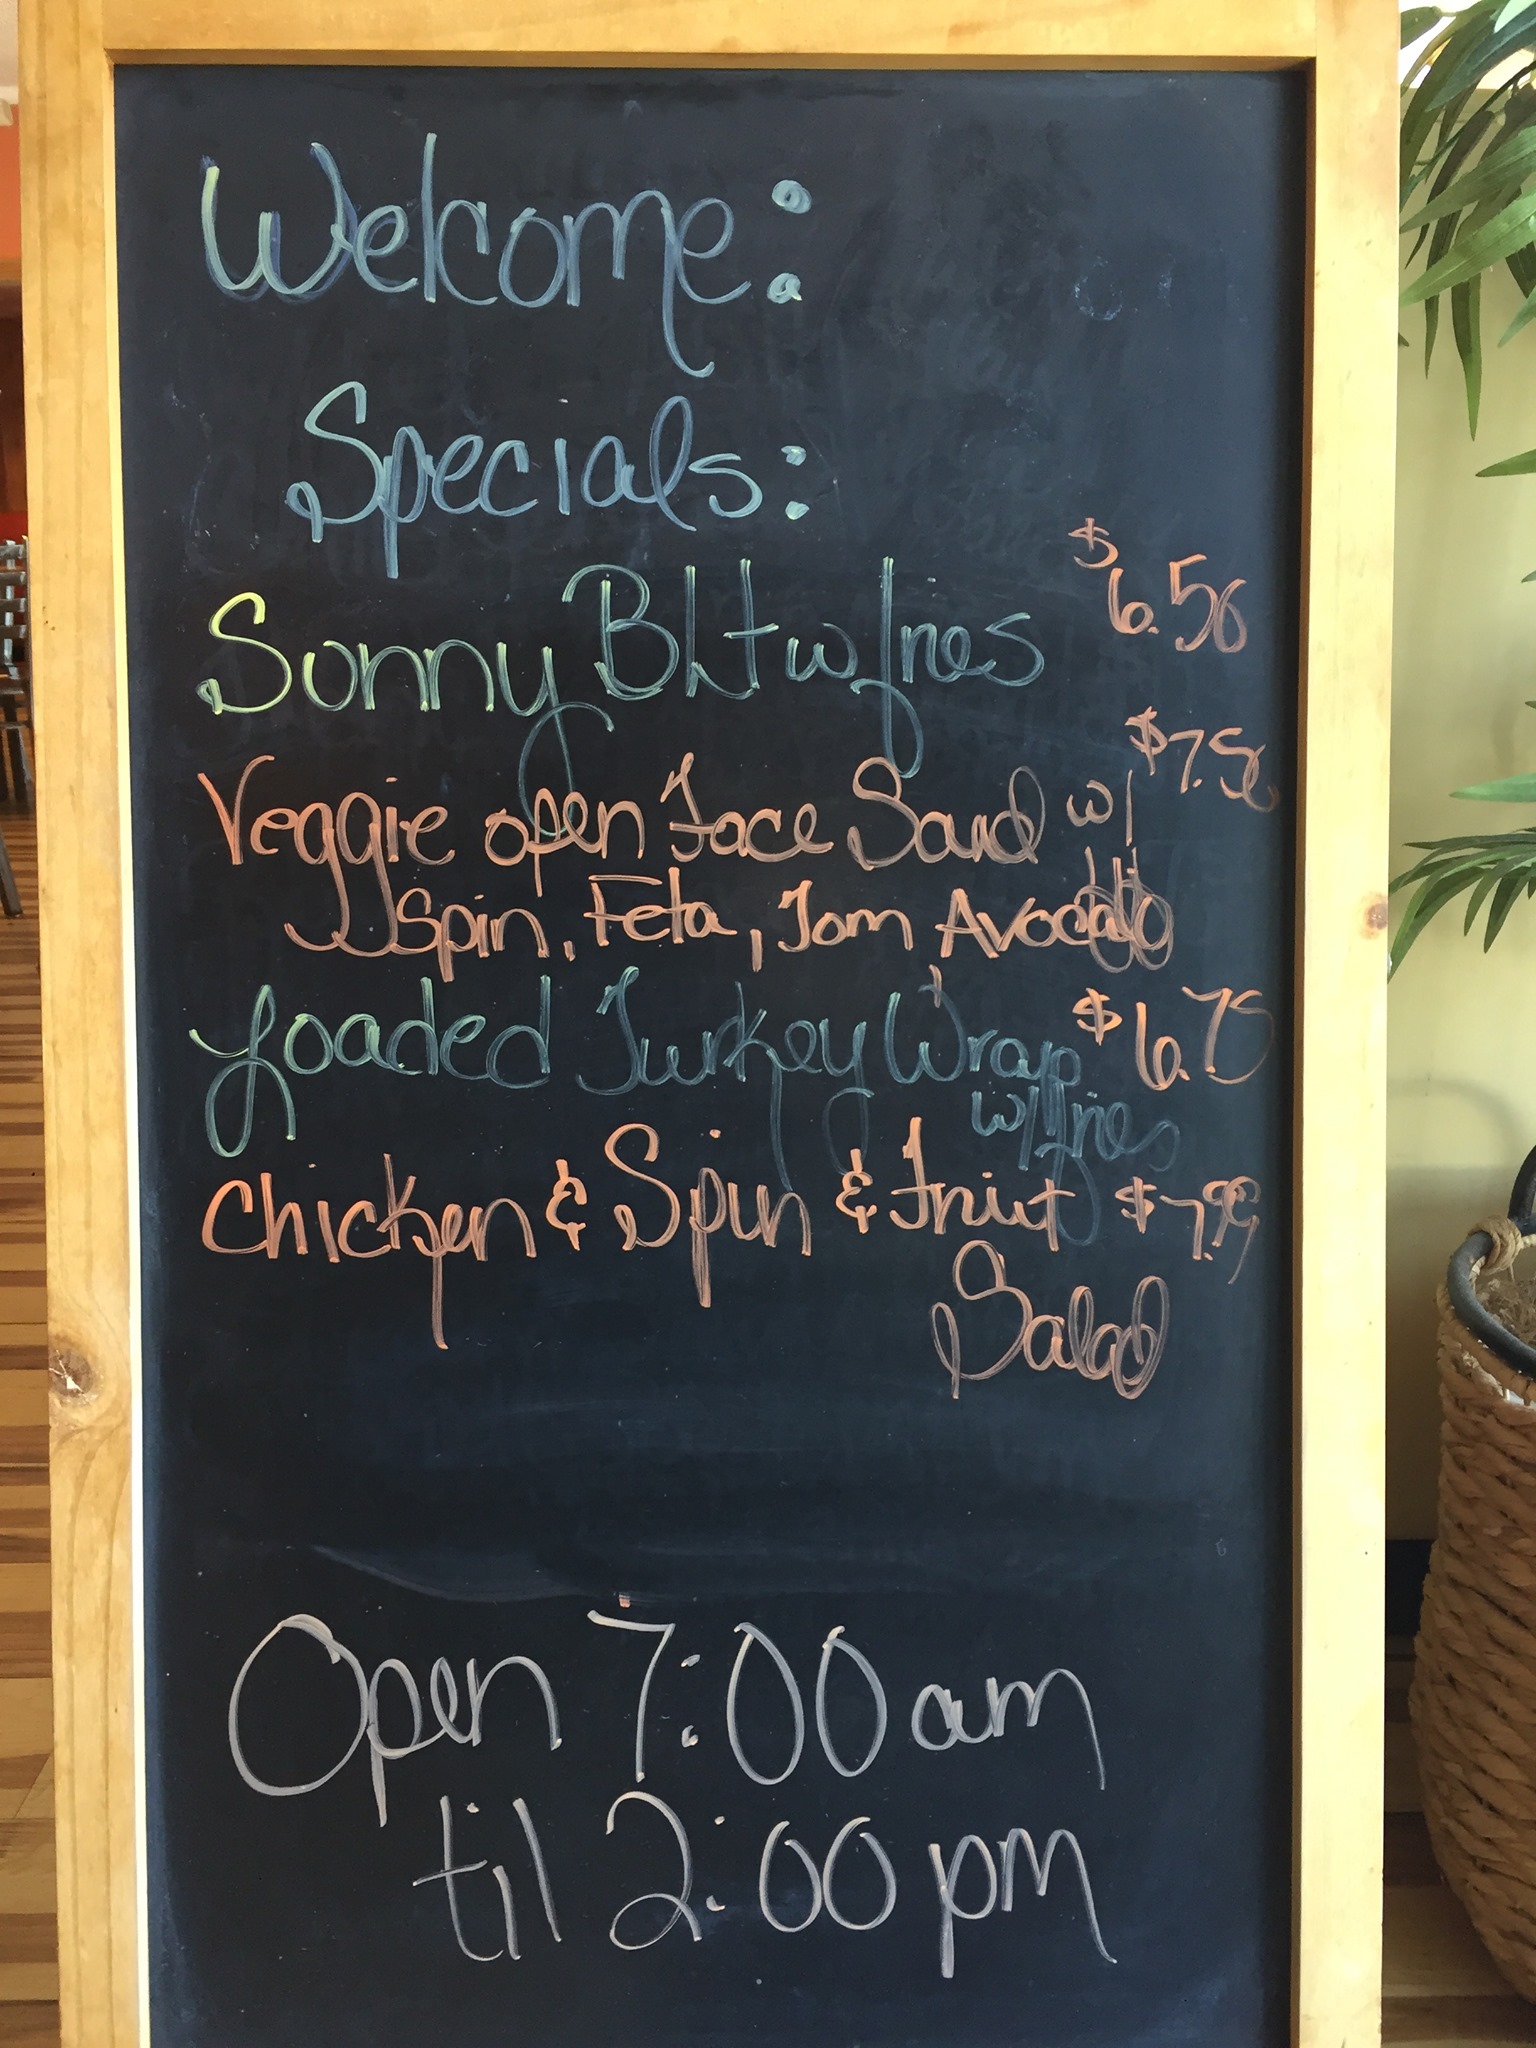 Welcome:
Specials:
Sonny BLT w/ fries $6.50
Veggie open Face Sand w/ $7.50
Spin, Feta, Tom Avocado
Loaded Turkey Wrap $6.75
w/ fries
Chicken & Spin & Fruit $7.99
Salad
Open 7:00 am
til 2:00 pm